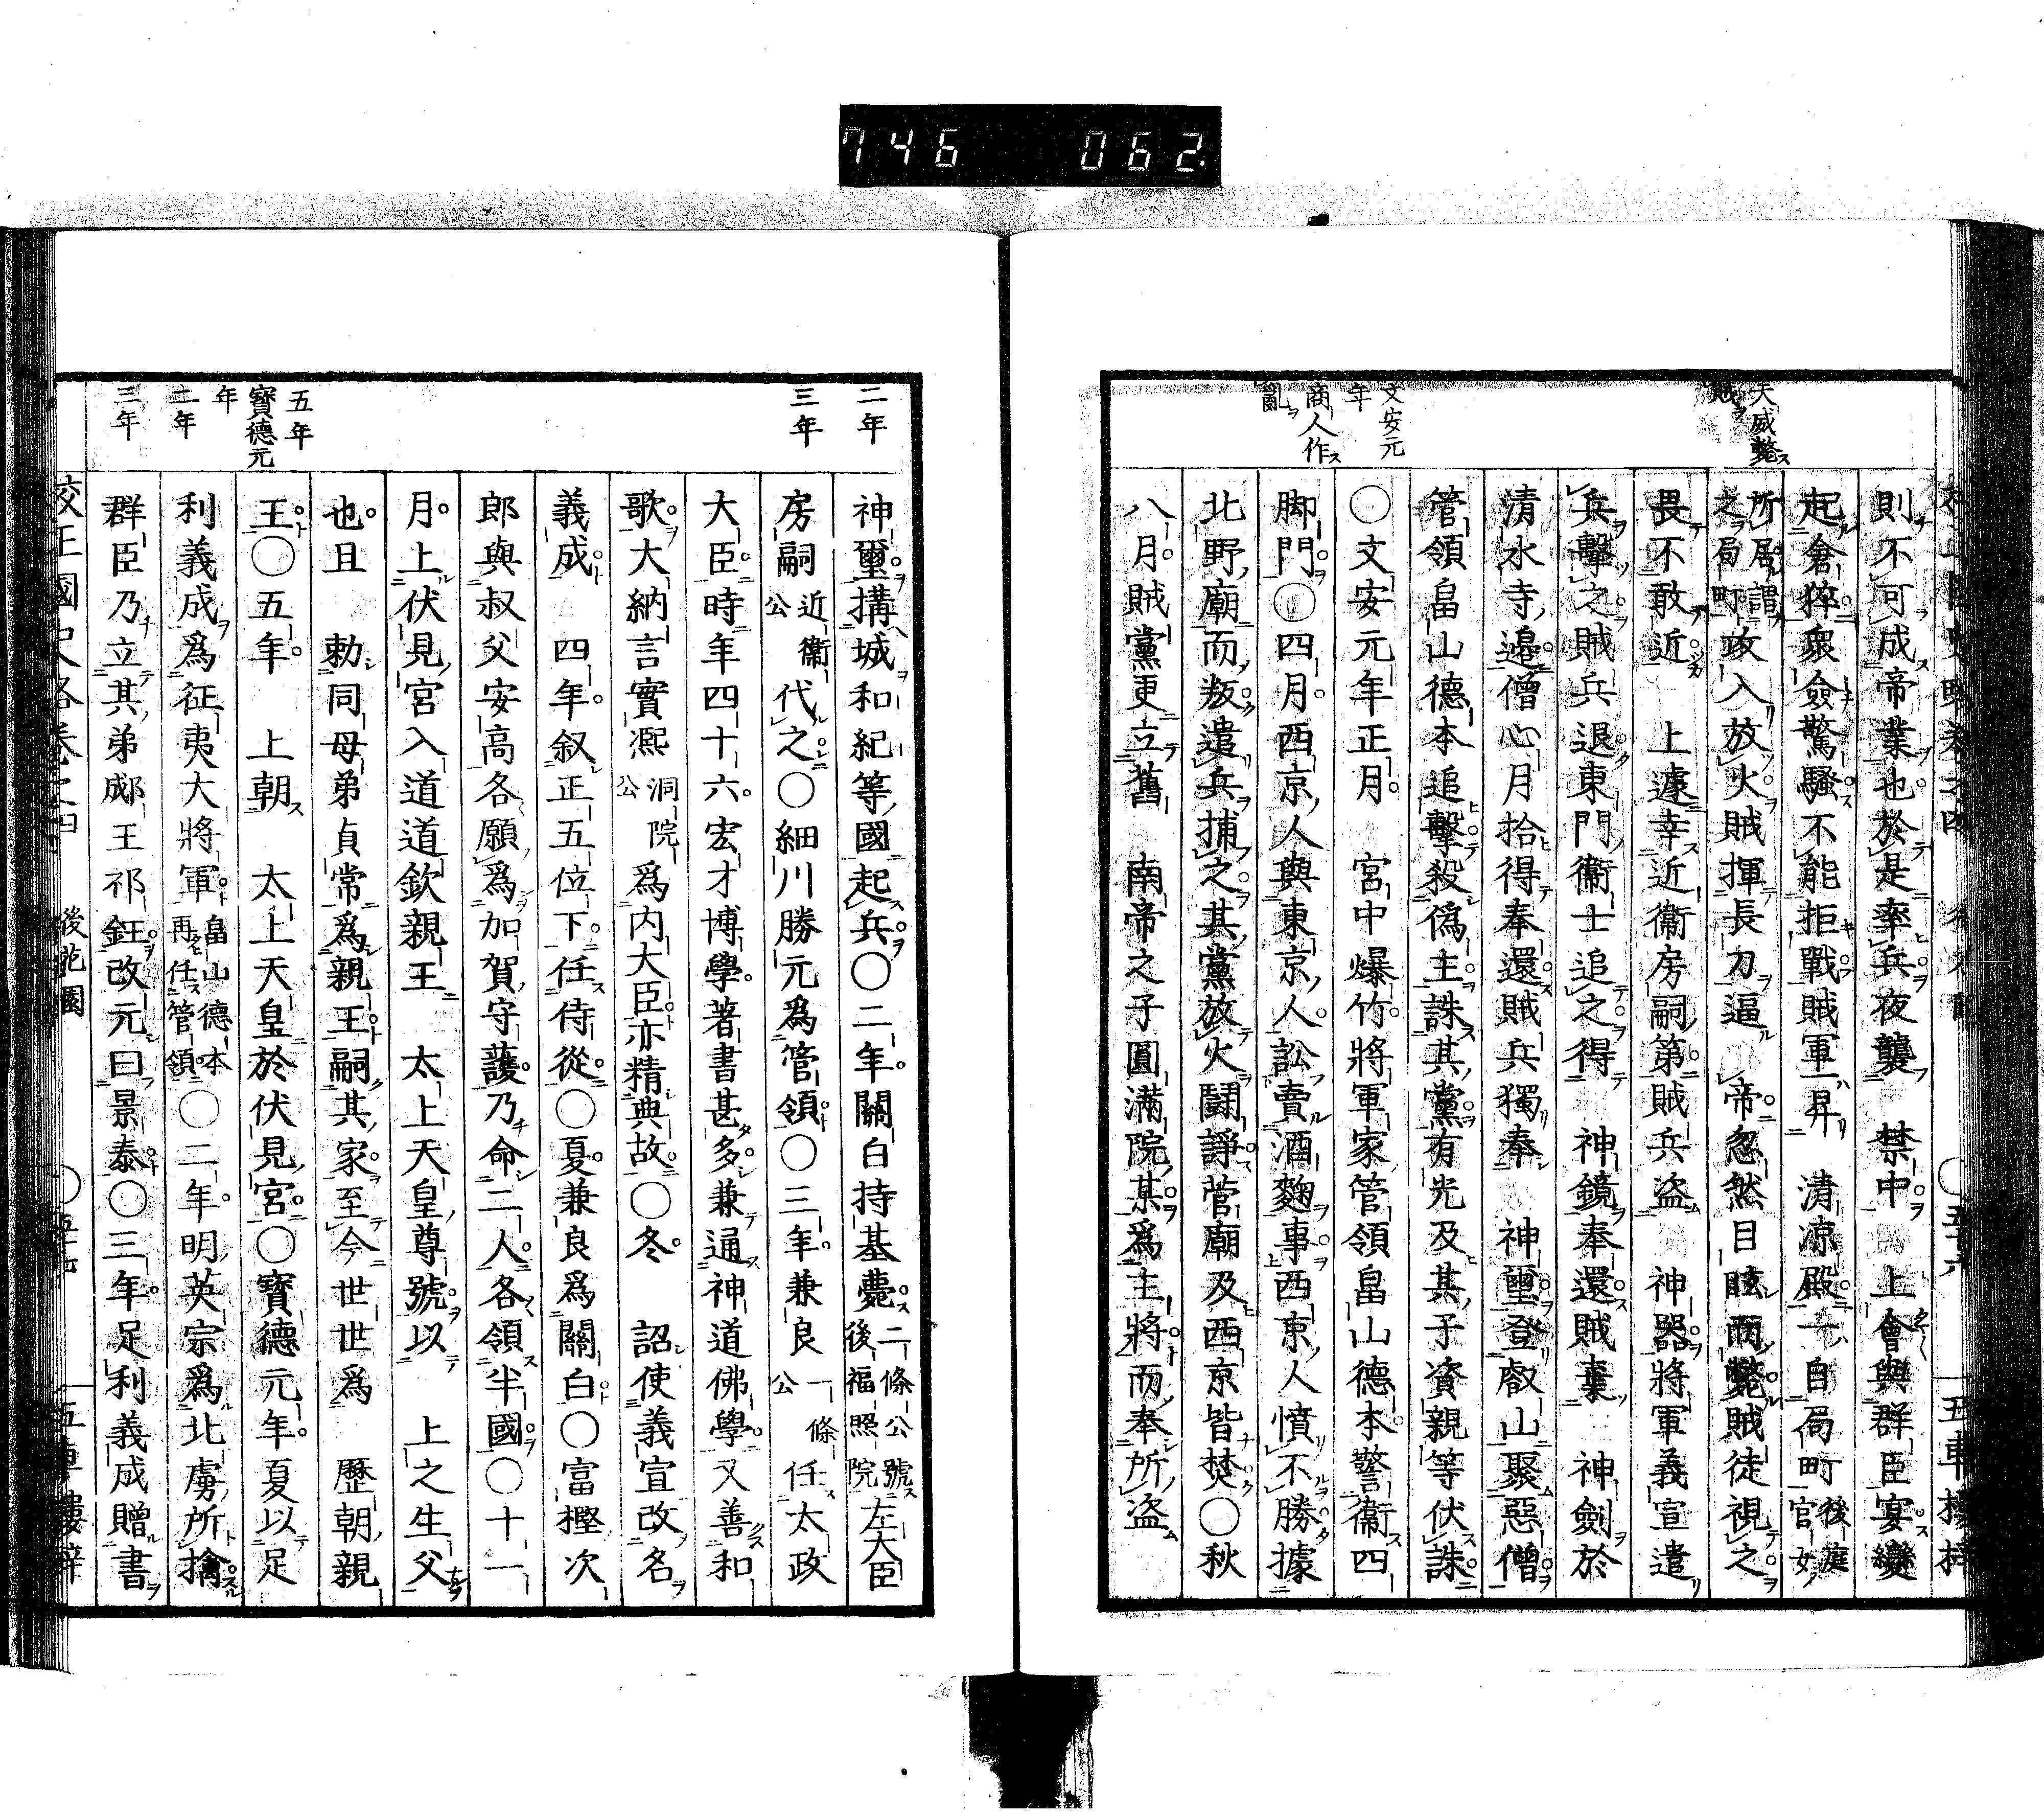 746 062
天威斃
賊
文安元
年
商人作
亂
則不可成帝業也於是率兵夜襲 禁中 上會與群臣宴變
起倉猝衆僉驚騷不能拒戰賊軍一昇 清凉殿一自局町後庭官女
所居謂之局町攻入放火賊揮長刀逼 帝忽然目眩而斃賊徒視之
畏不敢近 上遽幸近衞房嗣第賊兵盜 神器將軍義宣遣
兵擊之賊兵退東門衞士追之得 神鏡奉還賊棄 神劍於
清水寺邊僧心月拾得奉還賊兵獨奉 神璽登叡山聚惡僧
管領畠山德本追擊殺僞主誅其黨有光及其子資親等伏誅
○文安元年正月 宮中爆竹將軍家管領畠山德本警衞四
脚門○四月西京人與東京人訟賣酒麴事西京人憤不勝據
北野廟而叛遣兵捕之其黨放火鬪諍菅廟及西京皆焚○秋
八月賊黨更立舊 南帝之子圓滿院某爲主將而奉所盜
二年
三年
五年
寶德元
年
二年
三年
神璽搆城和紀等國起兵○二年關白持基薨二條公號後福照院左大臣
房嗣近衞公代之○細川勝元爲管領○三年兼良一條公任太政
大臣時年四十六宏才博學著書甚多兼通神道佛學又善和
歌大納言實凞洞院公爲内大臣亦精典故○冬 詔使義宣改名
義成 四年叙正五位下任侍從○夏兼良爲關白○富樫次
郎與叔父安高各願爲加賀守護乃命二人各領半國○十一
月上伏見宮入道道欽親王 太上天皇尊號以 上之生父
也且 勅同母弟貞常爲親王嗣其家至今世世爲 歷朝親
王○五年 上朝 太上天皇於伏見宮○寶德元年夏以足
利義成爲征夷大將軍畠山德本再任管領○二年明英宗爲北虜所擒
群臣乃立其弟郕王祁鈺改元曰景泰○三年足利義成贈書
校正國史略卷之四 後花園 ○五十七 五車樓梓